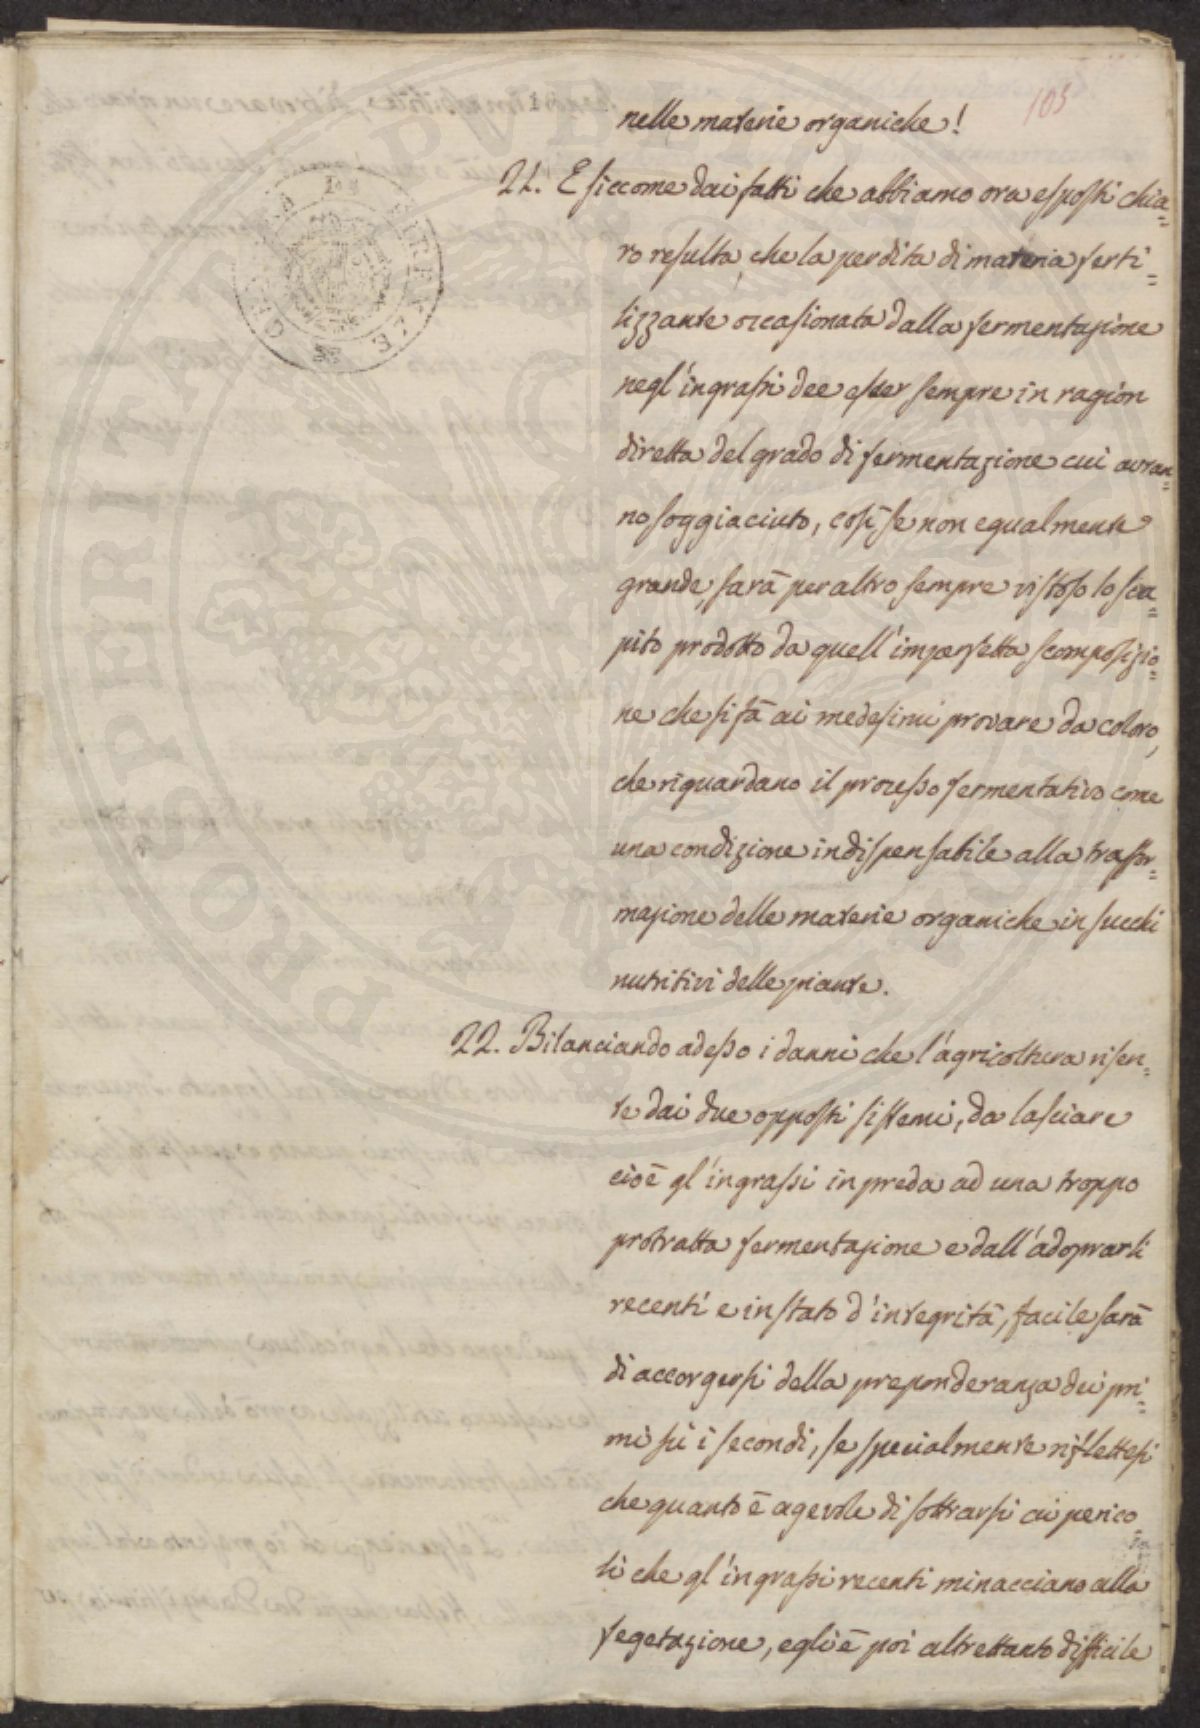 105
nelle materie organiche!
21. E siccome dai fatti che abbiamo ora esposti chia=
ro resulta, che la perdita di materia ferti=
lizzante occasionata dalla fermentazione
negl'ingrassi dee esser sempre in ragion
diretta del grado di fermentazione cui avran=
no soggiaciuto, così se non egualmente
grande, sarà per altro sempre vistoso lo sca=
pito prodotto da quell'imperfetta scomposizio=
ne che si fà ai medesimi provare da coloro,
che riguardano il processo fermentativo come
una condizione indispensabile alla trasfor=
mazione delle materie organiche in succhi
nutritivi delle piante.
22. Bilanciando adesso i danni che l'agricoltura risen=
te dai due opposti sistemi, da lasciare
cioè gl'ingrassi in preda ad una troppo
protratta fermentazione e dall'adoprarli
recenti e in stato d'integrità, facile sarà
di accorgersi della preponderanza dei pri=
mi sù i secondi, se specialmente riflettesi
che quanto è agevole di sottrarsi ai perico=
li che gl'ingrassi recenti minacciano alla
vegetazione, egli è poi altrettanto difficile